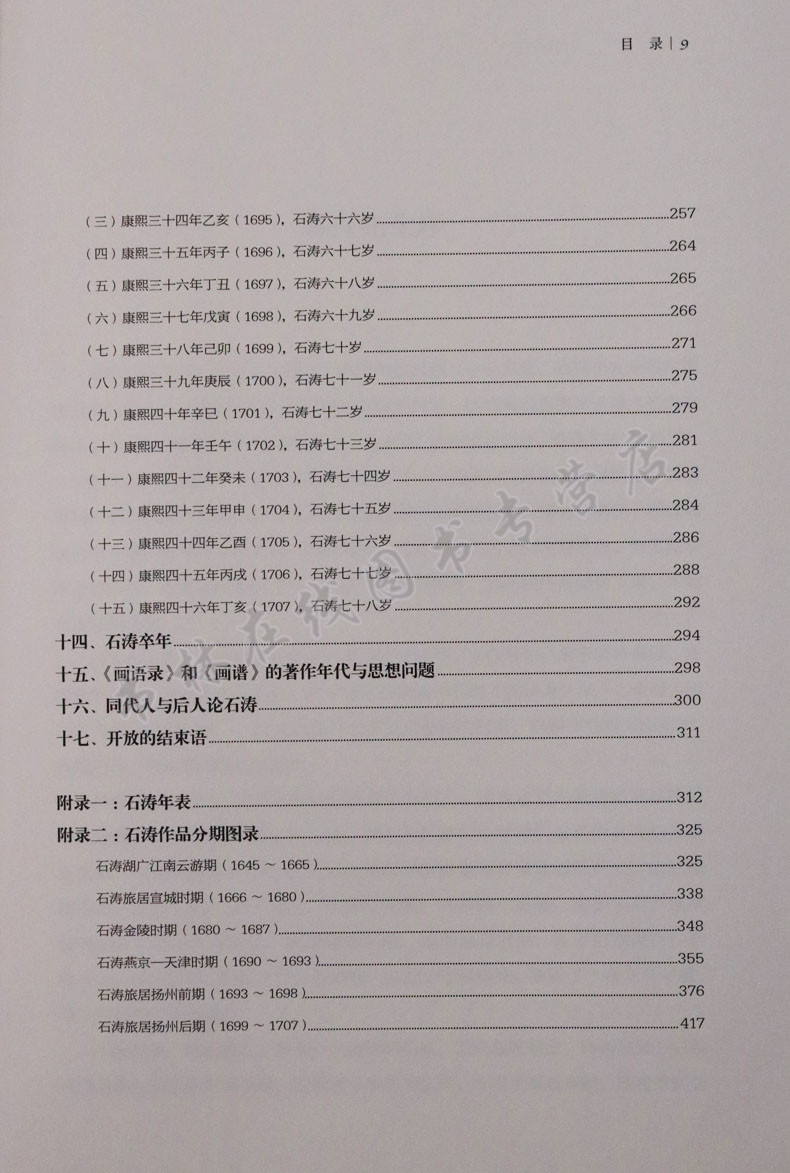 目 录 | 9
（三）康熙三十四年乙亥（1695），石涛六十六岁 257
（四）康熙三十五年丙子（1696），石涛六十七岁 264
（五）康熙三十六年丁丑（1697），石涛六十八岁 265
（六）康熙三十七年戊寅（1698），石涛六十九岁 266
（七）康熙三十八年己卯（1699），石涛七十岁 271
（八）康熙三十九年庚辰（1700），石涛七十一岁 275
（九）康熙四十年辛巳（1701），石涛七十二岁 279
（十）康熙四十一年壬午（1702），石涛七十三岁 281
（十一）康熙四十二年癸未（1703），石涛七十四岁 283
（十二）康熙四十三年甲申（1704），石涛七十五岁 284
（十三）康熙四十四年乙酉（1705），石涛七十六岁 286
（十四）康熙四十五年丙戌（1706），石涛七十七岁 288
（十五）康熙四十六年丁亥（1707），石涛七十八岁 292
十四、石涛卒年 294
十五、《画语录》和《画谱》的著作年代与思想问题 298
十六、同代人与后人论石涛 300
十七、开放的结束语 311
附录一：石涛年表 312
附录二：石涛作品分期图录 325
石涛湖广江南云游期（1645～1665） 325
石涛旅居宣城时期（1666～1680） 338
石涛金陵时期（1680～1687） 348
石涛燕京—天津时期（1690～1693） 355
石涛旅居扬州前期（1693～1698） 376
石涛旅居扬州后期（1699～1707） 417
在线图书专营店